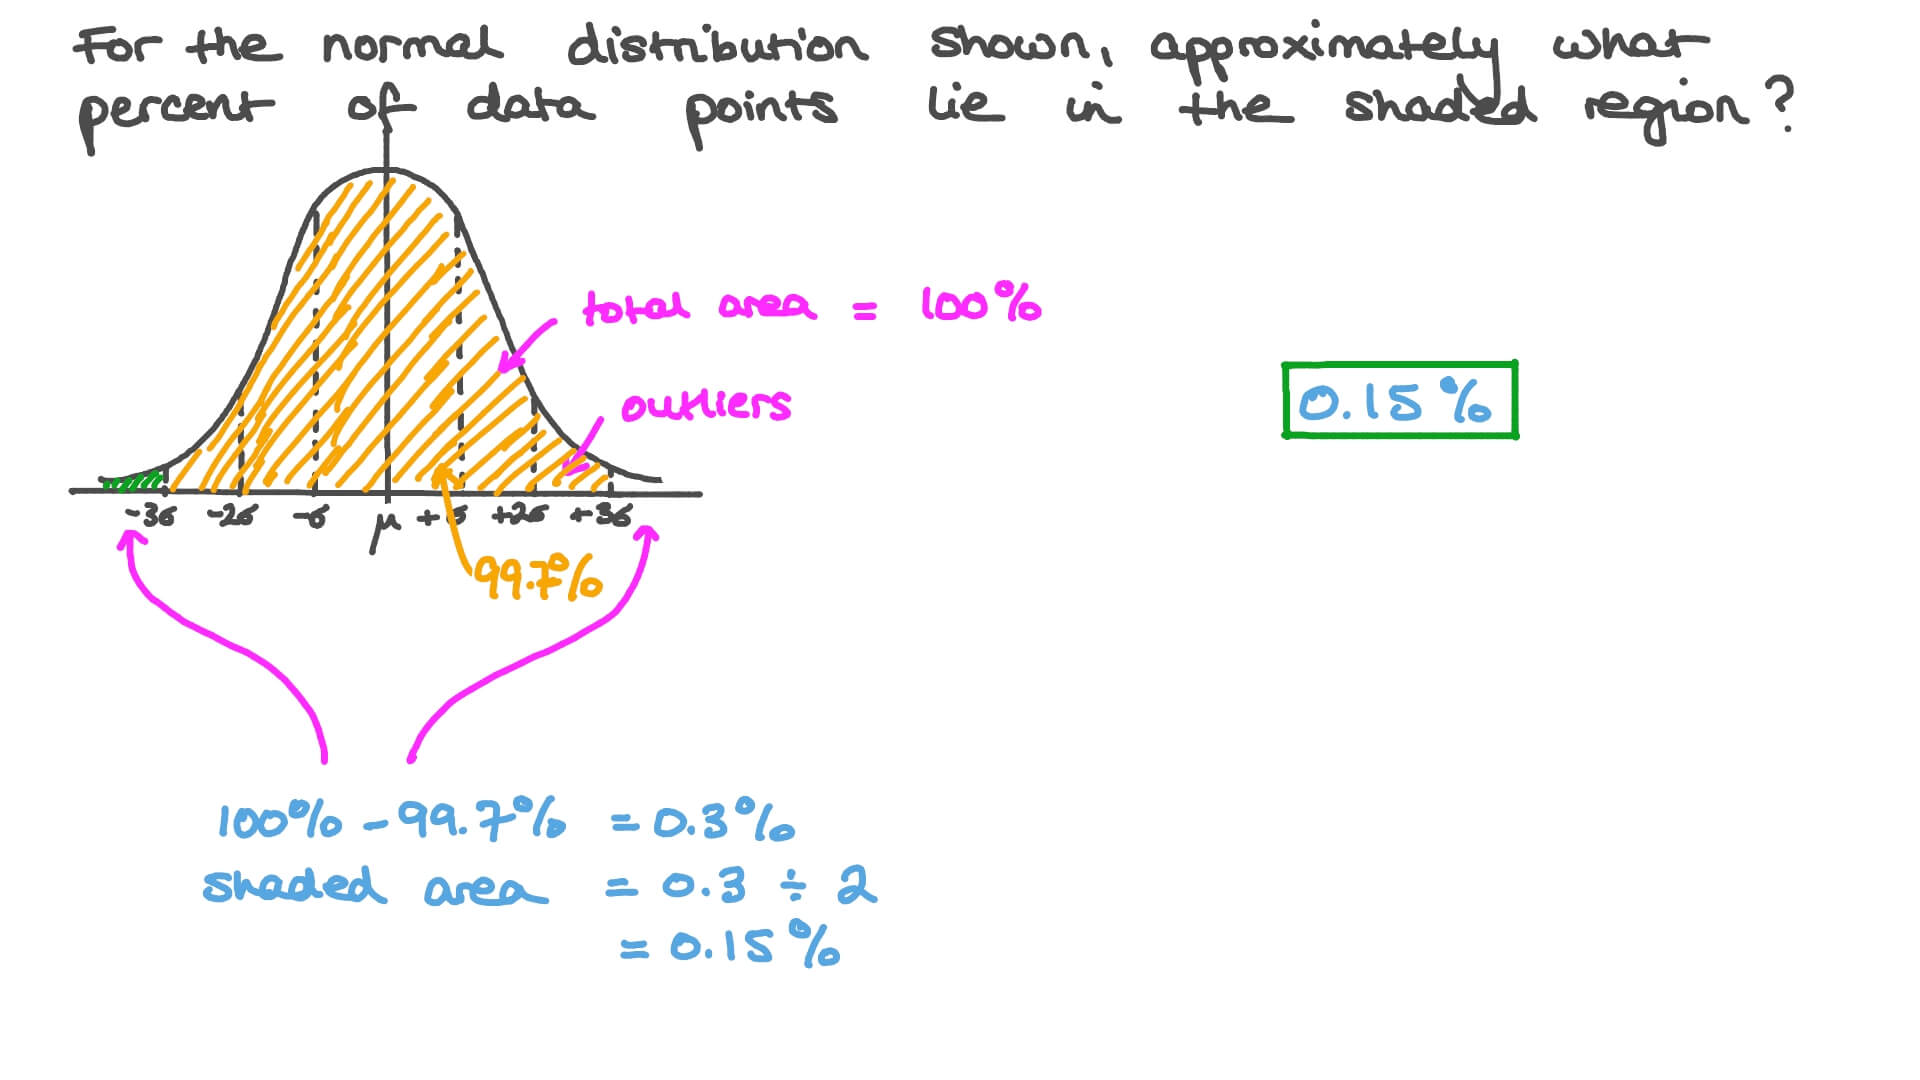 For the normal distribution shown, approximately what
percent of data points lie in the shaded region?
total area = 100%
outliers
0.15%
-3σ -2σ -σ μ +σ +2σ +3σ
99.7%
100% - 99.7% = 0.3%
shaded area = 0.3 ÷ 2
= 0.15%